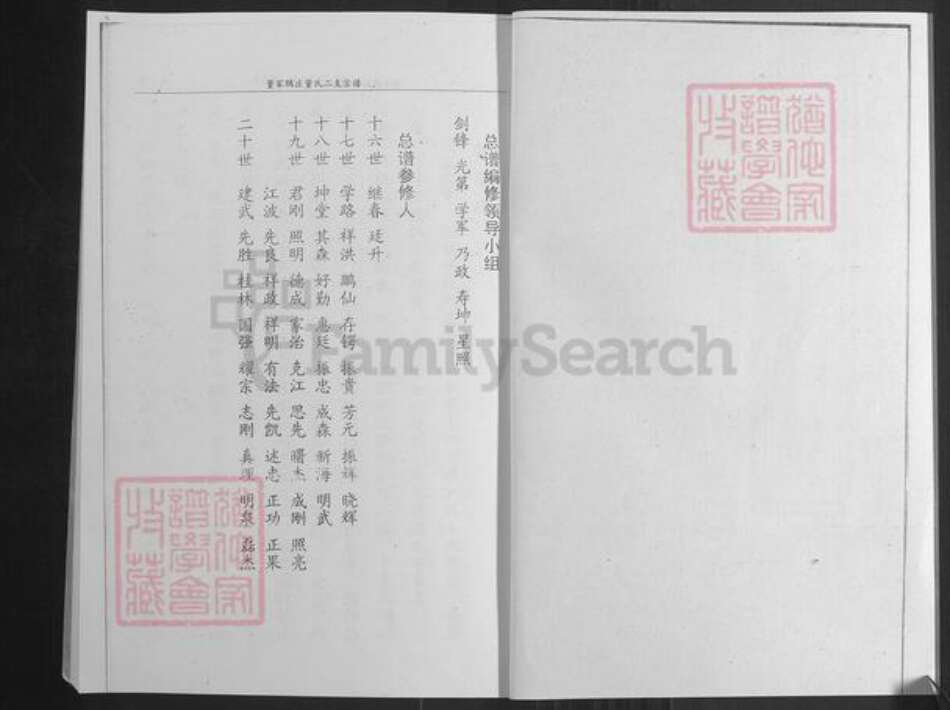 董家鸭庄董氏二支宗谱
总谱编修领导小组
剑锋 光第 学军 乃政 寿坤 星照
总谱参修人
十六世 继春 廷升
十七世 学路 祥洪 鹏仙 存锷 振贵 芳元 振祥 晓辉
十八世 坤堂 其森 好勤 惠廷 振忠 成森 新海 明武
十九世 君刚 照明 德成 家治 克江 思先 曙杰 成刚 照亮
江波 先良 祥政 祥明 有法 先凯 述忠 正功 正果
二十世 建武 先胜 桂林 国强 耀宗 志刚 真理 明泉 磊杰
犹他家
谱学会
收藏
犹他家
谱学会
收藏
FamilySearch